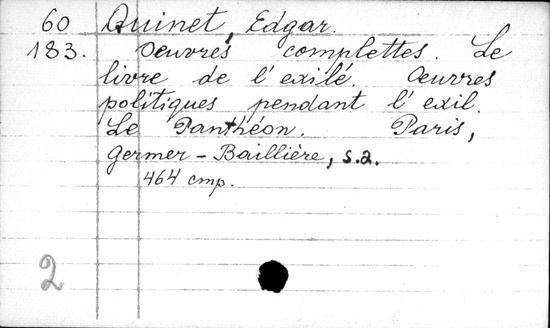 60 Quinet, Edgar.
183. Oeuvres complettes. Le
livre de l'exilé. Oeuvres
politiques pendant l'exil.
Le Panthéon. Paris,
Germer-Baillière, s.a.
464 cmp.
2